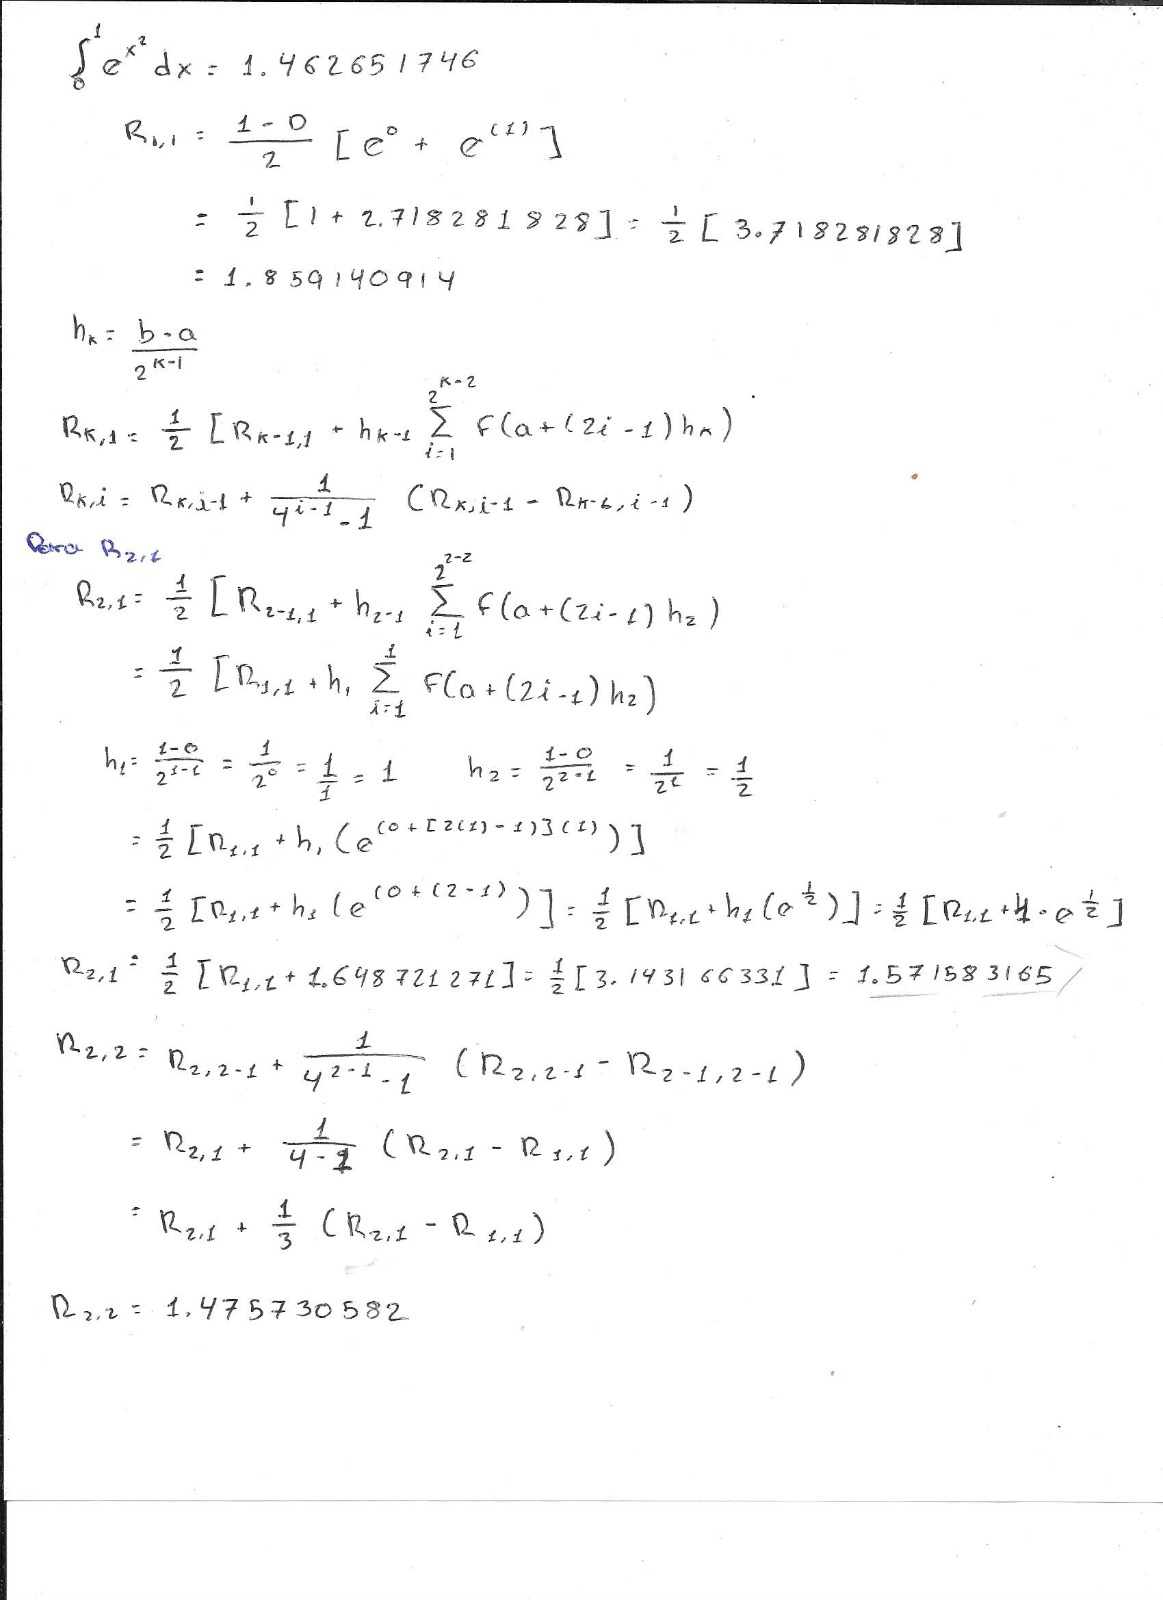 ∫₀¹ e^{x²} dx = 1.462651746
R₁,₁ = (1-0)/2 [e⁰ + e^{(1)}]
= 1/2 [1 + 2.718281828] = 1/2 [3.718281828]
= 1.859140914
h_k = (b-a)/2^{k-1}
R_{k,1} = 1/2 [R_{k-1,1} + h_{k-1} Σ_{i=1}^{2^{k-2}} f(a+(2i-1)h_k)
R_{k,i} = R_{k,i-1} + 1/(4^{i-1}-1) (R_{k,i-1} - R_{k-1,i-1})
Para R_{2,1}
R_{2,1} = 1/2 [R_{2-1,1} + h_{2-1} Σ_{i=1}^{2^{2-2}} f(a+(2i-1)h₂)
= 1/2 [R_{1,1} + h₁ Σ_{i=1}^{1} f(a+(2i-1)h₂)
h₁ = (1-0)/2^{1-1} = 1/2⁰ = 1/1 = 1 h₂ = (1-0)/2^{2-1} = 1/2¹ = 1/2
= 1/2 [R_{1,1} + h₁ (e^{(0+[2(1)-1)](1)})]
= 1/2 [R_{1,1} + h₁ (e^{(0+(2-1)})] = 1/2 [R_{1,1} + h₁(e^{1/2})] = 1/2 [R_{1,1} + 1·e^{1/2}]
R_{2,1} = 1/2 [R_{1,1} + 1.648721271] = 1/2 [3.143166331] = 1.571583165
R_{2,2} = R_{2,2-1} + 1/(4^{2-1}-1) (R_{2,2-1} - R_{2-1,2-1})
= R_{2,1} + 1/(4-1) (R_{2,1} - R_{1,1})
= R_{2,1} + 1/3 (R_{2,1} - R_{1,1})
R_{2,2} = 1.475730582